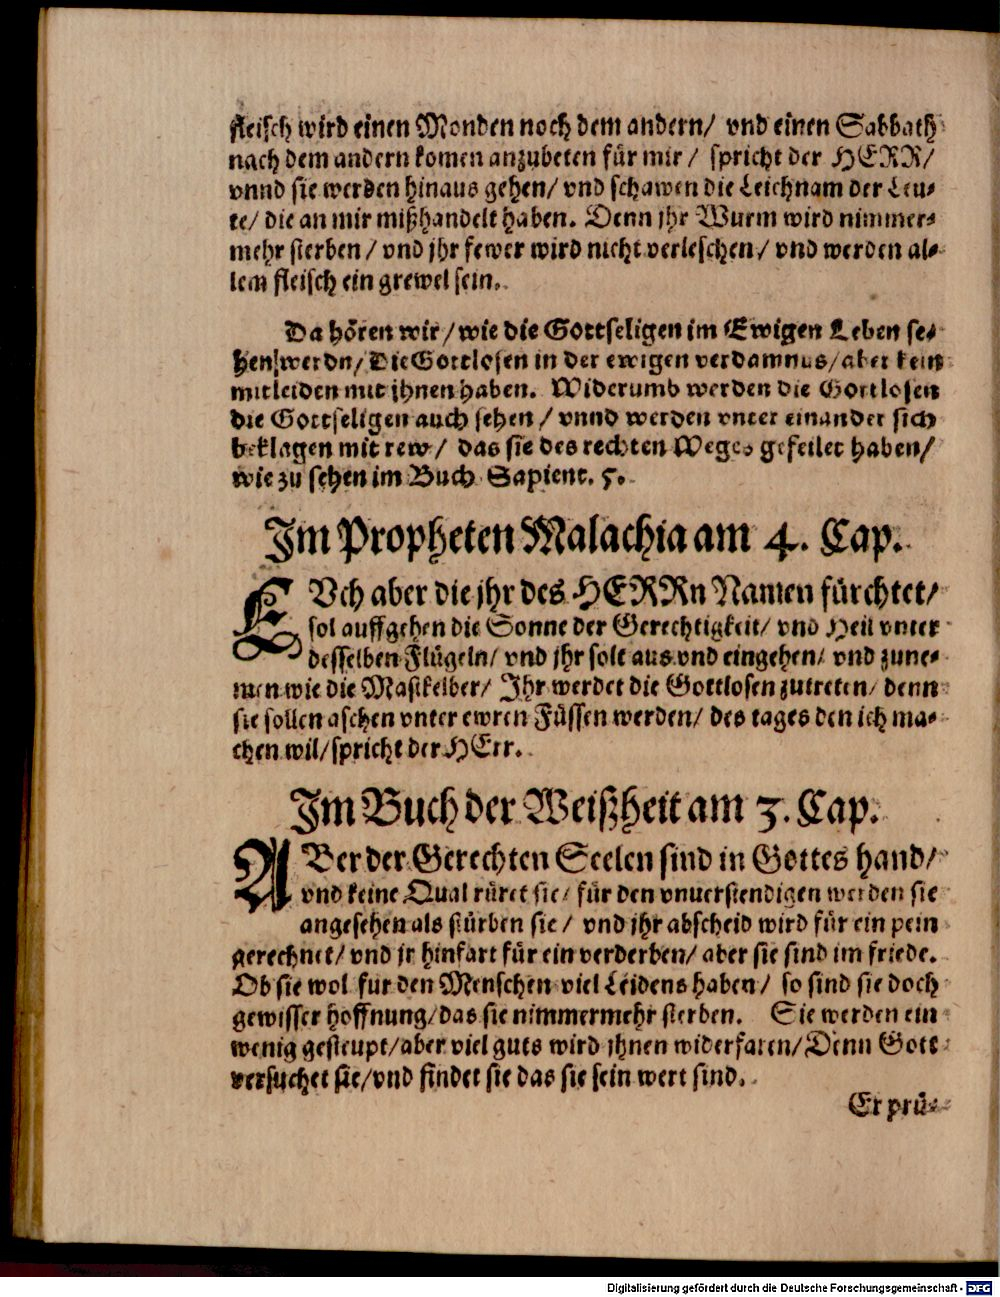 fleisch wird einen Monden noch dem andern/ vnd einen Sabbath
nach dem andern komen anzubeten für mir/ spricht der HERR/
vnnd sie werden hinaus gehen/ vnd schawen die Leichnam der Leu-
te/ die an mir mißhandelt haben. Denn jhr Wurm wird nimmer-
mehr sterben/ vnd jhr fewer wird nicht verleschen/ vnd werden al-
lem fleisch ein grewel sein.
Da hören wir/ wie die Gottseligen im Ewigen Leben se-
hen werdn/ Die Gottlosen in der ewigen verdamnus/ aber kein
mitleiden mit jhnen haben. Widerumb werden die Gottlosen
die Gottseligen auch sehen/ vnnd werden vnter einander sich
beklagen mit rew/ das sie des rechten Weges gefeilet haben/
wie zu sehen im Buch Sapient. 5.
Im Propheten Malachia am 4. Cap.
EVch aber die jhr des HERRn Namen fürchtet/
sol auffgehen die Sonne der Gerechtigkeit/ vnd Heil vnter
desselben Flügeln/ vnd jhr solt aus vnd eingehen/ vnd zune-
men wie die Mastkelber/ Ihr werdet die Gottlosen zutreten/ denn
sie sollen aschen vnter ewren Füssen werden/ des tages den ich ma-
chen wil/ spricht der HErr.
Im Buch der Weißheit am 3. Cap.
ABer der Gerechten Seelen sind in Gottes hand/
vnd keine Qual rüret sie/ für den vnuerstendigen werden sie
angesehen als stürben sie/ vnd jhr abscheid wird für ein pein
gerechnet/ vnd jr hinfart für ein verderben/ aber sie sind im friede.
Ob sie wol für den Menschen viel Leidens haben/ so sind sie doch
gewisser hoffnung/ das sie nimmermehr sterben. Sie werden ein
wenig gesteupt/ aber viel guts wird jhnen widerfaren/ Denn Gott
versuchet sie/ vnd findet sie das sie sein wert sind.
Er prü-
Digitalisierung gefördert durch die Deutsche Forschungsgemeinschaft - DFG